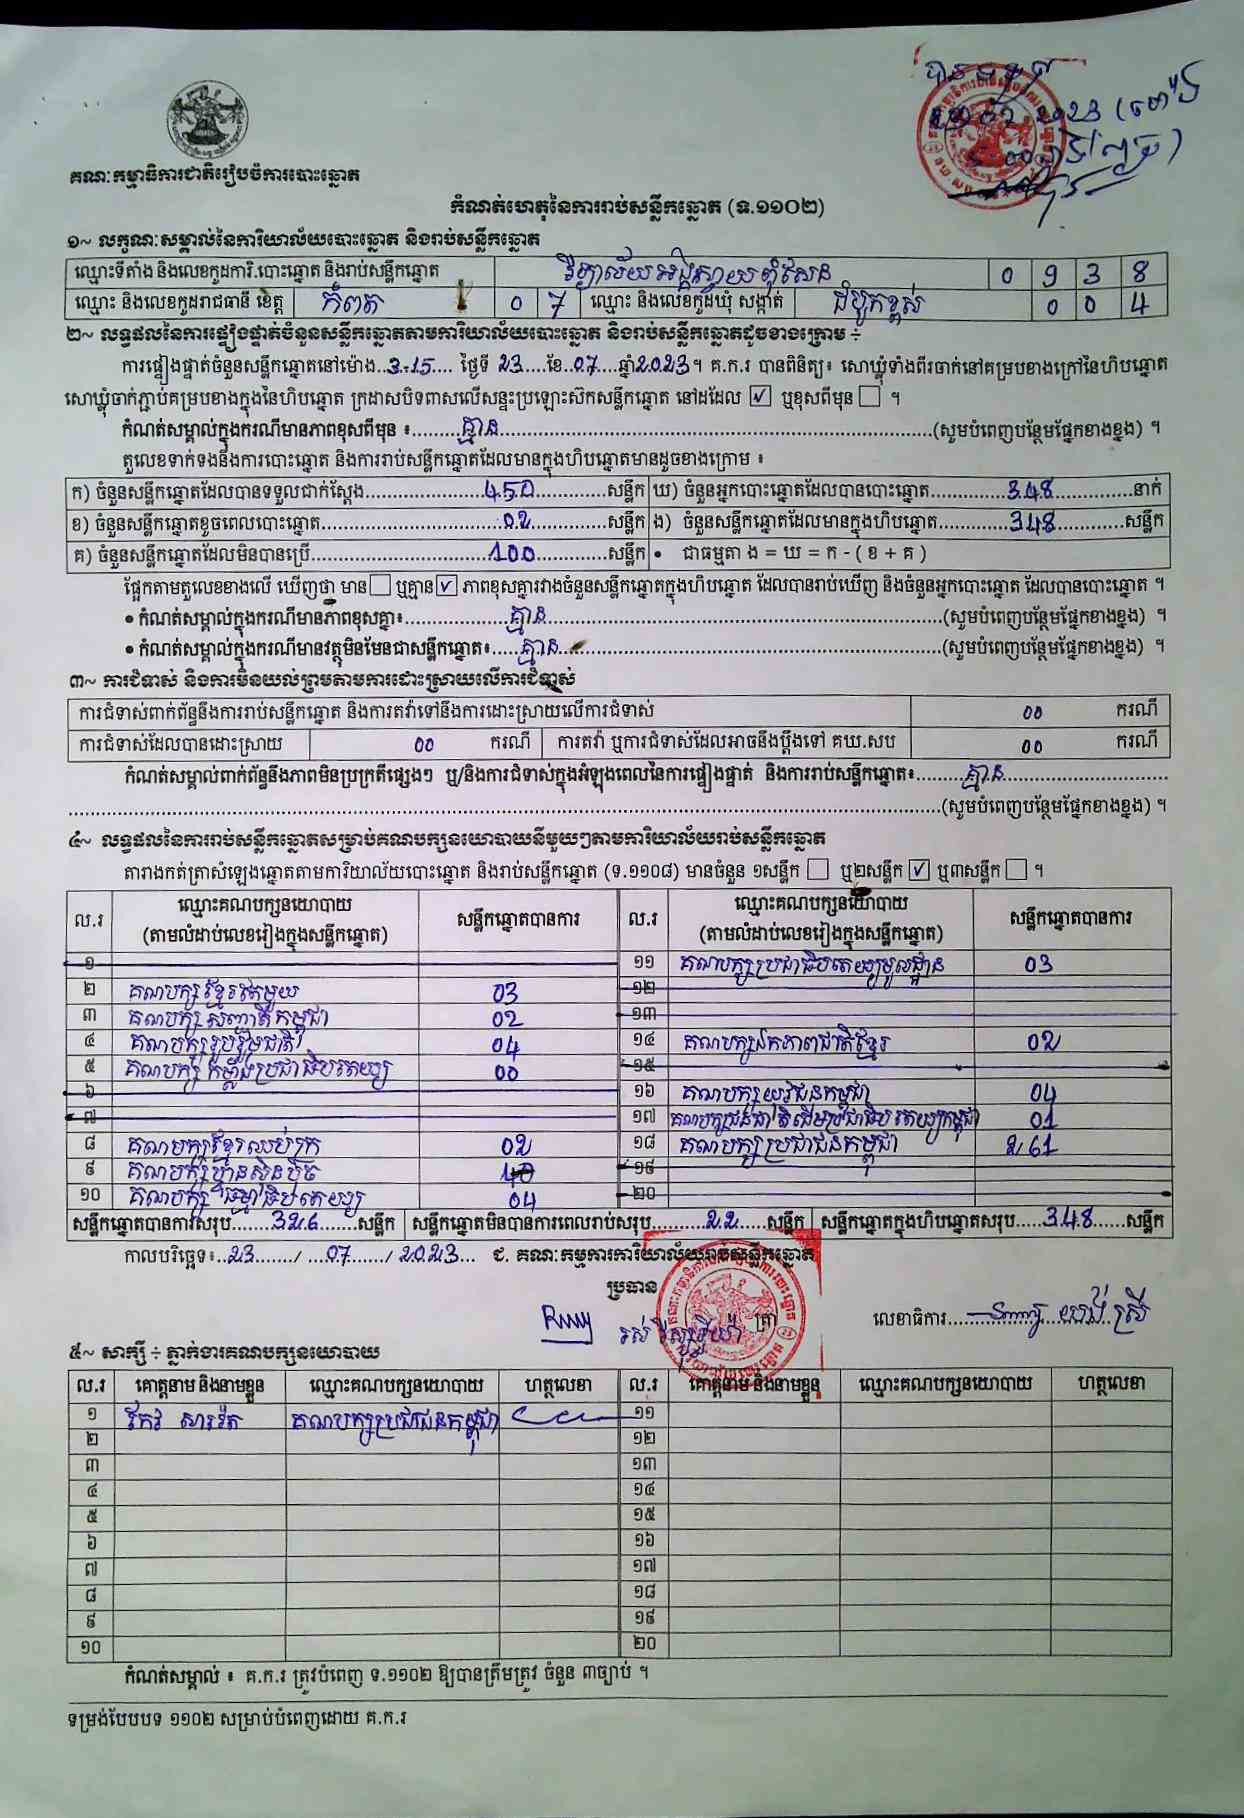 គណៈកម្មាធិការជាតិរៀបចំការបោះឆ្នោត
កំណត់ហេតុនៃការរាប់សន្លឹកឆ្នោត (ទ.១១០២)
១~ លក្ខណៈសម្គាល់នៃការិយាល័យបោះឆ្នោត និងរាប់សន្លឹកឆ្នោត
ឈ្មោះទីតាំង និងលេខកូដការិ.បោះឆ្នោត និងរាប់សន្លឹកឆ្នោត វិទ្យាល័យ 0 9 3 8
ឈ្មោះ និងលេខកូដរាជធានី ខេត្ត កំពត 0 7 ឈ្មោះ និងលេខកូដឃុំ សង្កាត់ 0 0 4
២~ លទ្ធផលនៃការផ្ទៀងផ្ទាត់ចំនួនសន្លឹកឆ្នោតតាមការិយាល័យបោះឆ្នោត និងរាប់សន្លឹកឆ្នោតដូចខាងក្រោម ÷
ការផ្ទៀងផ្ទាត់ចំនួនសន្លឹកឆ្នោតនៅម៉ោង..3-15.... ថ្ងៃទី 23....ខែ..07....ឆ្នាំ2023។ គ.ក.រ បានពិនិត្យ៖ សោឃ្លុំទាំងពីរចាក់នៅគម្របខាងក្រៅនៃហិបឆ្នោត
សោឃ្លុំចាក់ភ្ជាប់គម្របខាងក្នុងនៃហិបឆ្នោត ក្រដាសបិទពាសលើសន្ទះប្រឡោះស៊កសន្លឹកឆ្នោត នៅដដែល ☑ ឬខុសពីមុន ☐ ។
កំណត់សម្គាល់ក្នុងករណីមានភាពខុសពីមុន ៖........គ្មាន........(សូមបំពេញបន្ថែមផ្នែកខាងខ្នង) ។
តួលេខទាក់ទងនឹងការបោះឆ្នោត និងការរាប់សន្លឹកឆ្នោតដែលមានក្នុងហិបឆ្នោតមានដូចខាងក្រោម ៖
ក) ចំនួនសន្លឹកឆ្នោតដែលបានទទួលជាក់ស្ដែង........450........សន្លឹក ឃ) ចំនួនអ្នកបោះឆ្នោតដែលបានបោះឆ្នោត........348........នាក់
ខ) ចំនួនសន្លឹកឆ្នោតខូចពេលបោះឆ្នោត........02........សន្លឹក ង) ចំនួនសន្លឹកឆ្នោតដែលមានក្នុងហិបឆ្នោត........348........សន្លឹក
គ) ចំនួនសន្លឹកឆ្នោតដែលមិនបានប្រើ........100........សន្លឹក • ជាធម្មតា ង = ឃ = ក - ( ខ + គ )
ផ្អែកតាមតួលេខខាងលើ ឃើញថា មាន ☐ ឬគ្មាន ☑ ភាពខុសគ្នារវាងចំនួនសន្លឹកឆ្នោតក្នុងហិបឆ្នោត ដែលបានរាប់ឃើញ និងចំនួនអ្នកបោះឆ្នោត ដែលបានបោះឆ្នោត ។
• កំណត់សម្គាល់ក្នុងករណីមានភាពខុសគ្នា៖........គ្មាន........(សូមបំពេញបន្ថែមផ្នែកខាងខ្នង) ។
• កំណត់សម្គាល់ក្នុងករណីមានវត្ថុមិនមែនជាសន្លឹកឆ្នោត៖.....គ្មាន........(សូមបំពេញបន្ថែមផ្នែកខាងខ្នង) ។
៣~ ការជំទាស់ និងការមិនយល់ព្រមតាមការដោះស្រាយលើការជំទាស់
ការជំទាស់ពាក់ព័ន្ធនឹងការរាប់សន្លឹកឆ្នោត និងការតវ៉ាទៅនឹងការដោះស្រាយលើការជំទាស់ 00 ករណី
ការជំទាស់ដែលបានដោះស្រាយ 00 ករណី ការតវ៉ា ឬការជំទាស់ដែលអាចនឹងប្ដឹងទៅ គឃ.សប 00 ករណី
កំណត់សម្គាល់ពាក់ព័ន្ធនឹងភាពមិនប្រក្រតីផ្សេងៗ ឬ/និងការជំទាស់ក្នុងអំឡុងពេលនៃការផ្ទៀងផ្ទាត់ និងការរាប់សន្លឹកឆ្នោត៖........គ្មាន........
........(សូមបំពេញបន្ថែមផ្នែកខាងខ្នង) ។
៤~ លទ្ធផលនៃការរាប់សន្លឹកឆ្នោតសម្រាប់គណបក្សនយោបាយនីមួយៗតាមការិយាល័យរាប់សន្លឹកឆ្នោត
តារាងកត់ត្រាសំឡេងឆ្នោតតាមការិយាល័យបោះឆ្នោត និងរាប់សន្លឹកឆ្នោត (ទ.១១០៨) មានចំនួន ១សន្លឹក ☐ ឬ២សន្លឹក ☑ ឬ៣សន្លឹក ☐ ។
ល.រ ឈ្មោះគណបក្សនយោបាយ (តាមលំដាប់លេខរៀងក្នុងសន្លឹកឆ្នោត) សន្លឹកឆ្នោតបានការ ល.រ ឈ្មោះគណបក្សនយោបាយ (តាមលំដាប់លេខរៀងក្នុងសន្លឹកឆ្នោត) សន្លឹកឆ្នោតបានការ
១ ១១ គណបក្សប្រជាធិបតេយ្យមូលដ្ឋាន 03
២ គណបក្សខ្មែរតែមួយ 03 ១២
៣ គណបក្សសញ្ជាតិកម្ពុជា 02 ១៣
៤ គណបក្សរួបរួមជាតិ 04 ១៤ គណបក្សឯកភាពជាតិខ្មែរ 02
៥ គណបក្សកម្លាំងប្រជាធិបតេយ្យ 00 ១៥
៦ ១៦ គណបក្សយុវជនកម្ពុជា 04
៧ ១៧ គណបក្សជនជាតិដើមប្រជាធិបតេយ្យកម្ពុជា 01
៨ គណបក្សខ្មែរឈប់ក្រ 02 ១៨ គណបក្សប្រជាជនកម្ពុជា 261
៩ គណបក្សហ្វ៊ុនស៊ិនប៉ិច 40 ១៩
១០ គណបក្សធម្មាធិបតេយ្យ 04 ២០
សន្លឹកឆ្នោតបានការសរុប.....326.......សន្លឹក សន្លឹកឆ្នោតមិនបានការពេលរាប់សរុប........22.....សន្លឹក សន្លឹកឆ្នោតក្នុងហិបឆ្នោតសរុប.....348......សន្លឹក
កាលបរិច្ឆេទ៖..23....../ ...07....../ 2023... ជ. គណៈកម្មការការិយាល័យរាប់សន្លឹកឆ្នោត
ប្រធាន
ត្រា លេខាធិការ........ យង់ ស្រី
៥~ សាក្សី ÷ ភ្នាក់ងារគណបក្សនយោបាយ
ល.រ គោត្តនាម និងនាមខ្លួន ឈ្មោះគណបក្សនយោបាយ ហត្ថលេខា ល.រ គោត្តនាម និងនាមខ្លួន ឈ្មោះគណបក្សនយោបាយ ហត្ថលេខា
១ កែវ សារ៉ាត គណបក្សប្រជាជនកម្ពុជា ១១
២ ១២
៣ ១៣
៤ ១៤
៥ ១៥
៦ ១៦
៧ ១៧
៨ ១៨
៩ ១៩
១០ ២០
កំណត់សម្គាល់ ៖ គ.ក.រ ត្រូវបំពេញ ទ.១១០២ ឱ្យបានត្រឹមត្រូវ ចំនួន ៣ច្បាប់ ។
ទម្រង់បែបបទ ១១០២ សម្រាប់បំពេញដោយ គ.ក.រ